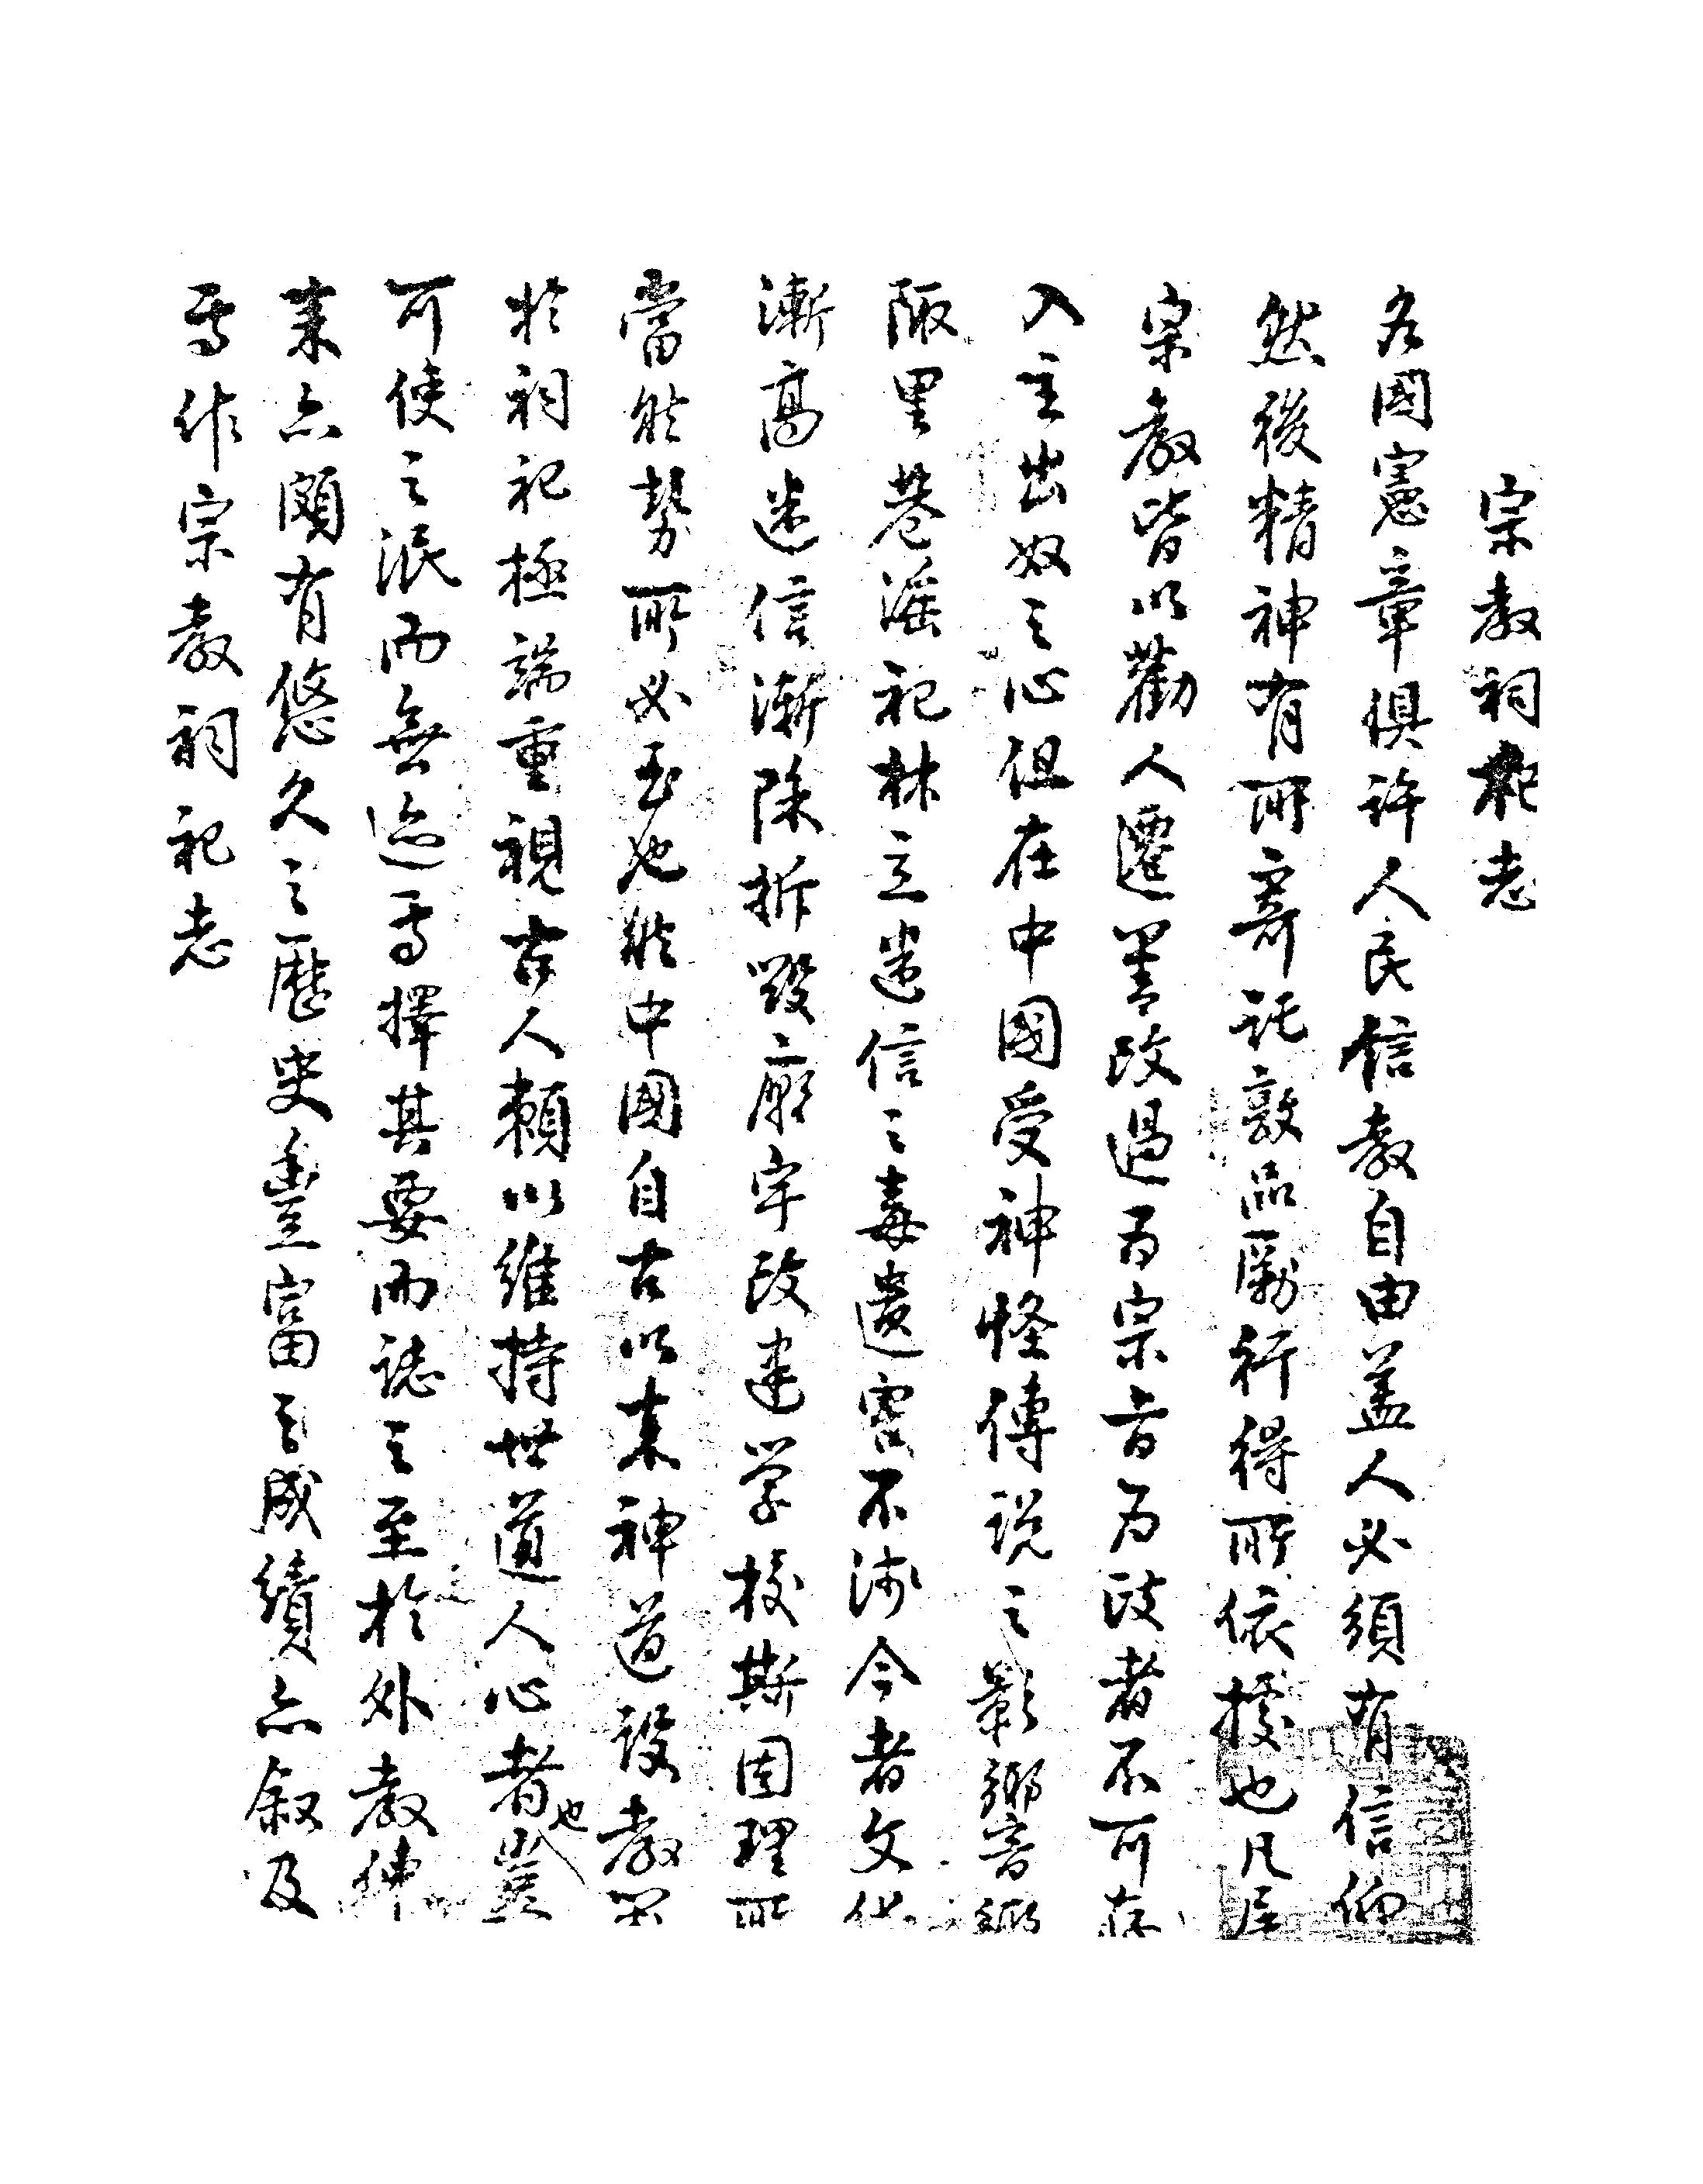 宗教祠祀志
各國憲章俱許人民信教自由蓋人必須有信仰
然後精神有所寄託敦品勵行得所依據也凡屬
宗教皆以勸人遷善改過為宗旨為政者不可存
入主出奴之心但在中國受神怪傳說之影響鄉
陬里巷滛祀林立迷信之毒遺害不淺今者文化
漸高迷信漸除拆毀廟宇改建学校斯固理所
當然勢所必至也然中國自古以來神道設教
於祠祀極端重視古人賴以維持世道人心者也豈
可使之泯而無迹爰擇其要而誌之至於外教傳
來亦頗有悠久之歷史豐富之成績亦叙及
焉作宗教祠祀志